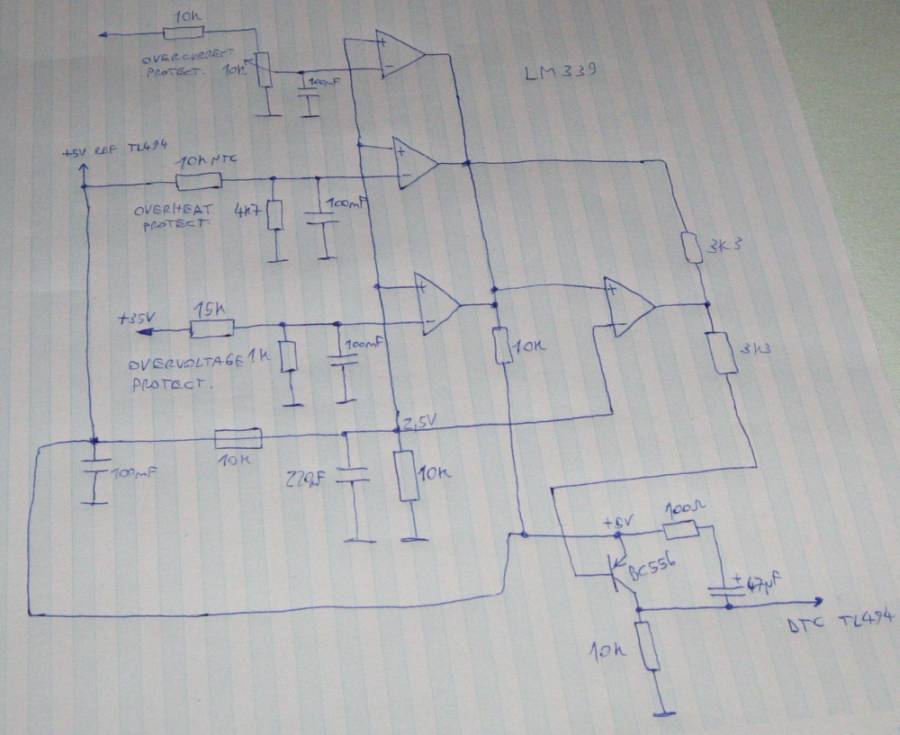 10k
OVERCURRENT
PROTECT.
10k
100mF
+
-
LM339
+5V REF TL494
10k NTC
+
-
OVERHEAT
PROTECT.
4k7
100mF
3K3
+35V
15k
+
-
+
-
OVERVOLTAGE
PROTECT.
1k
100mF
10k
3k3
2,5V
100mF
10k
220µF
10k
+5V
100Ω
BC556
+
47µF
DTC TL494
10k